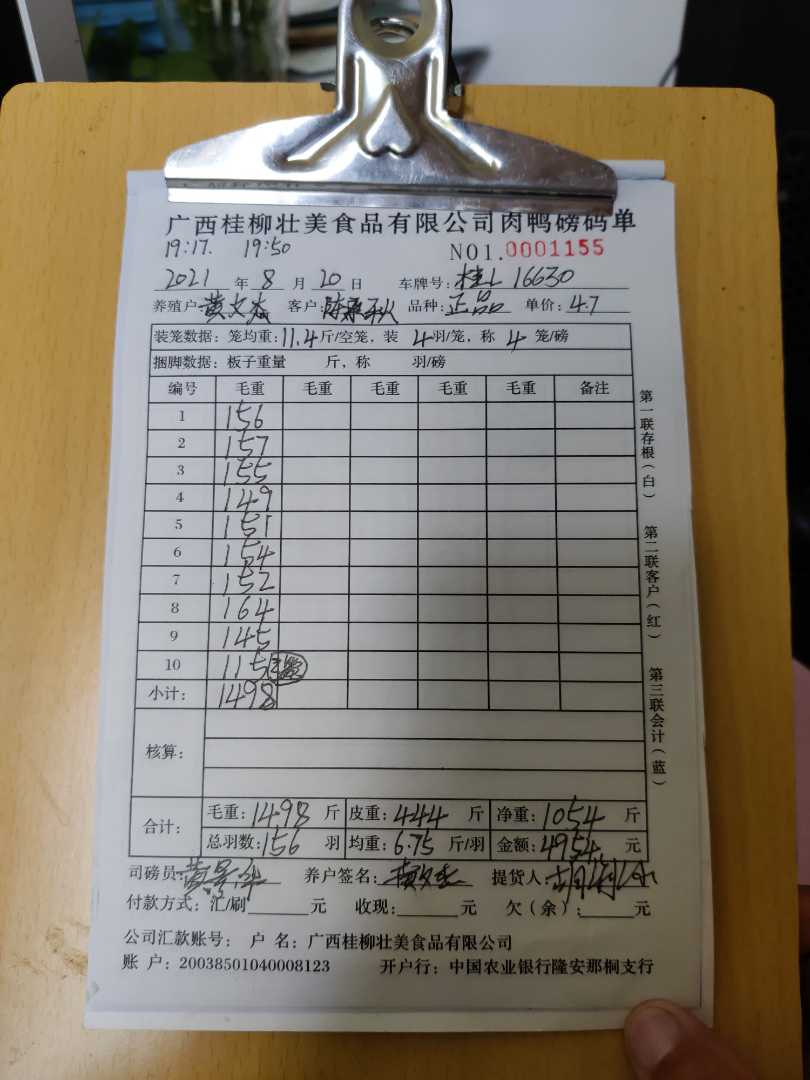 广西桂柳壮美食品有限公司肉鸭磅码单
19:17. 19:50 NO1.0001155
2021 年 8 月 20 日 车牌号: 桂L 16630
养殖户 黄文 客户: 陈 秋 品种: 正品 单价: 4.7
装笼数据: 笼均重: 11.4 斤/空笼, 装 4 羽/笼, 称 4 笼/磅
捆脚数据: 板子重量 斤, 称 羽/磅
编号 毛重 毛重 毛重 毛重 毛重 备注
1 156
2 157
3 155
4 149
5 151
6 154
7 152
8 164
9 145
10 115
小计: 1498
核算:
合计: 毛重: 1498 斤 皮重: 444 斤 净重: 1054 斤
总羽数: 156 羽 均重: 6.75 斤/羽 金额: 4954 元
司磅员: 黄 养户签名: 黄文 提货人: 胡
付款方式: 汇/刷 元 收现: 元 欠（余）: 元
公司汇款账号: 户 名: 广西桂柳壮美食品有限公司
账 户: 20038501040008123 开户行: 中国农业银行隆安那桐支行
第一联存根（白） 第二联客户（红） 第三联会计（蓝）